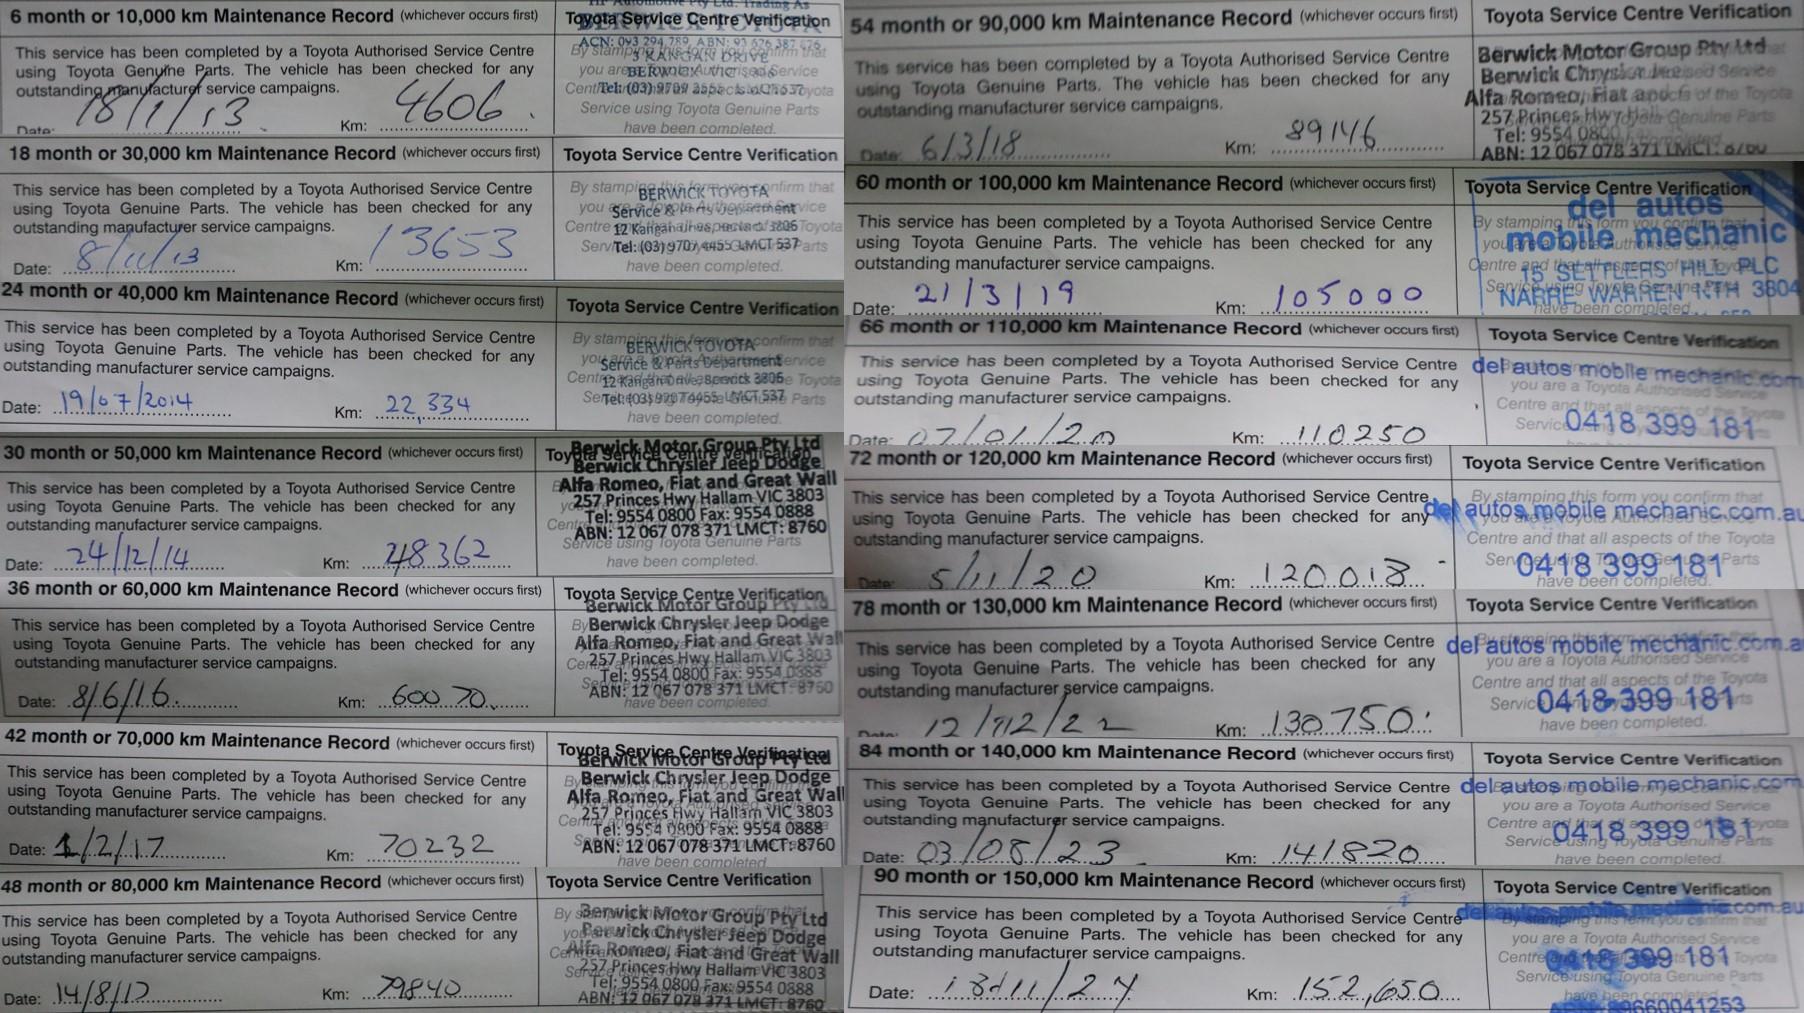 6 month or 10,000 km Maintenance Record (whichever occurs first)
This service has been completed by a Toyota Authorised Service Centre
using Toyota Genuine Parts. The vehicle has been checked for any
outstanding manufacturer service campaigns.
Date: 18/1/13 Km: 4606
Toyota Service Centre Verification
BERWICK TOYOTA
3 KANGAN DRIVE
Service using Toyota Genuine Parts
have been completed.
18 month or 30,000 km Maintenance Record (whichever occurs first)
This service has been completed by a Toyota Authorised Service Centre
using Toyota Genuine Parts. The vehicle has been checked for any
outstanding manufacturer service campaigns.
Date: 8/11/13 Km: 13653
Toyota Service Centre Verification
BERWICK TOYOTA
Service & Parts Department
Tel: (03) 9707 4455 LMCT 537
have been completed.
24 month or 40,000 km Maintenance Record (whichever occurs first)
This service has been completed by a Toyota Authorised Service Centre
using Toyota Genuine Parts. The vehicle has been checked for any
outstanding manufacturer service campaigns.
Date: 19/07/2014 Km: 22,334
Toyota Service Centre Verification
BERWICK TOYOTA
Service & Parts Department
12 Kangan Drive, Berwick 3806
Tel: (03) 9707 4455 LMCT 537
have been completed.
30 month or 50,000 km Maintenance Record (whichever occurs first)
This service has been completed by a Toyota Authorised Service Centre
using Toyota Genuine Parts. The vehicle has been checked for any
outstanding manufacturer service campaigns.
Date: 24/12/14 Km: 48362
Toyota Service Centre Verification
Berwick Motor Group Pty Ltd
Berwick Chrysler Jeep Dodge
Alfa Romeo, Fiat and Great Wall
257 Princes Hwy Hallam VIC 3803
Tel: 9554 0800 Fax: 9554 0888
ABN: 12 067 078 371 LMCT: 8760
Service using Toyota Genuine Parts
have been completed.
36 month or 60,000 km Maintenance Record (whichever occurs first)
This service has been completed by a Toyota Authorised Service Centre
using Toyota Genuine Parts. The vehicle has been checked for any
outstanding manufacturer service campaigns.
Date: 8/6/16. Km: 60070
Toyota Service Centre Verification
Berwick Motor Group Pty Ltd
Berwick Chrysler Jeep Dodge
Alfa Romeo, Fiat and Great Wall
257 Princes Hwy Hallam VIC 3803
Tel: 9554 0800 Fax: 9554 0888
ABN: 12 067 078 371 LMCT: 8760
have been completed.
42 month or 70,000 km Maintenance Record (whichever occurs first)
This service has been completed by a Toyota Authorised Service Centre
using Toyota Genuine Parts. The vehicle has been checked for any
outstanding manufacturer service campaigns.
Date: 1/2/17 Km: 70232
Toyota Service Centre Verification
Berwick Motor Group Pty Ltd
Berwick Chrysler Jeep Dodge
Alfa Romeo, Fiat and Great Wall
257 Princes Hwy Hallam VIC 3803
Tel: 9554 0800 Fax: 9554 0888
ABN: 12 067 078 371 LMCT: 8760
have been completed
48 month or 80,000 km Maintenance Record (whichever occurs first)
This service has been completed by a Toyota Authorised Service Centre
using Toyota Genuine Parts. The vehicle has been checked for any
outstanding manufacturer service campaigns.
Date: 14/8/17 Km: 79840
Toyota Service Centre Verification
Berwick Motor Group Pty Ltd
Berwick Chrysler Jeep Dodge
Alfa Romeo, Fiat and Great Wall
257 Princes Hwy Hallam VIC 3803
Tel: 9554 0800 Fax: 9554 0888
ABN: 12 067 078 371 LMCT: 8760
54 month or 90,000 km Maintenance Record (whichever occurs first)
This service has been completed by a Toyota Authorised Service Centre
using Toyota Genuine Parts. The vehicle has been checked for any
outstanding manufacturer service campaigns.
Date: 6/3/18 Km: 89146
Toyota Service Centre Verification
Berwick Motor Group Pty Ltd
Berwick Chrysler
Alfa Romeo, Fiat and
257 Princes Hwy
Tel: 9554 0800
ABN: 12 067 078 371 LMCT:
60 month or 100,000 km Maintenance Record (whichever occurs first)
This service has been completed by a Toyota Authorised Service Centre
using Toyota Genuine Parts. The vehicle has been checked for any
outstanding manufacturer service campaigns.
Date: 21/3/19 Km: 105000
Toyota Service Centre Verification
del autos
mobile mechanic
15 SETTLERS HILL PLC
NARRE WARREN NTH 3804
have been completed
66 month or 110,000 km Maintenance Record (whichever occurs first)
This service has been completed by a Toyota Authorised Service Centre
using Toyota Genuine Parts. The vehicle has been checked for any
outstanding manufacturer service campaigns.
Date: 07/01/20 Km: 110250
Toyota Service Centre Verification
del autos mobile mechanic.com
you are a Toyota Authorised Service
0418 399 181
72 month or 120,000 km Maintenance Record (whichever occurs first)
This service has been completed by a Toyota Authorised Service Centre
using Toyota Genuine Parts. The vehicle has been checked for any
outstanding manufacturer service campaigns.
Date: 5/11/20 Km: 120013
Toyota Service Centre Verification
By stamping this form you confirm that
del autos mobile mechanic.com.au
Centre and that all aspects of the Toyota
0418 399 181
have been completed.
78 month or 130,000 km Maintenance Record (whichever occurs first)
This service has been completed by a Toyota Authorised Service Centre
using Toyota Genuine Parts. The vehicle has been checked for any
outstanding manufacturer service campaigns.
Date: 12/12/22 Km: 130750
Toyota Service Centre Verification
del autos mobile mechanic.com.a
you are a Toyota Authorised Service
Centre and that all aspects of the Toyota
0418 399 181
have been completed.
84 month or 140,000 km Maintenance Record (whichever occurs first)
This service has been completed by a Toyota Authorised Service Centre
using Toyota Genuine Parts. The vehicle has been checked for any
outstanding manufacturer service campaigns.
Date: 03/08/23 Km: 141820
Toyota Service Centre Verification
del autos mobile mechanic.com
you are a Toyota Authorised Service
0418 399 181
Service using Toyota Genuine Parts
have been completed.
90 month or 150,000 km Maintenance Record (whichever occurs first)
This service has been completed by a Toyota Authorised Service Centre
using Toyota Genuine Parts. The vehicle has been checked for any
outstanding manufacturer service campaigns.
Date: 18/11/24 Km: 152,650
Toyota Service Centre Verification
del autos mobile mechanic.com.au
you are a Toyota Authorised Service
0418 399 181
Service using Toyota Genuine Parts
have been completed
ABN: 89660041253